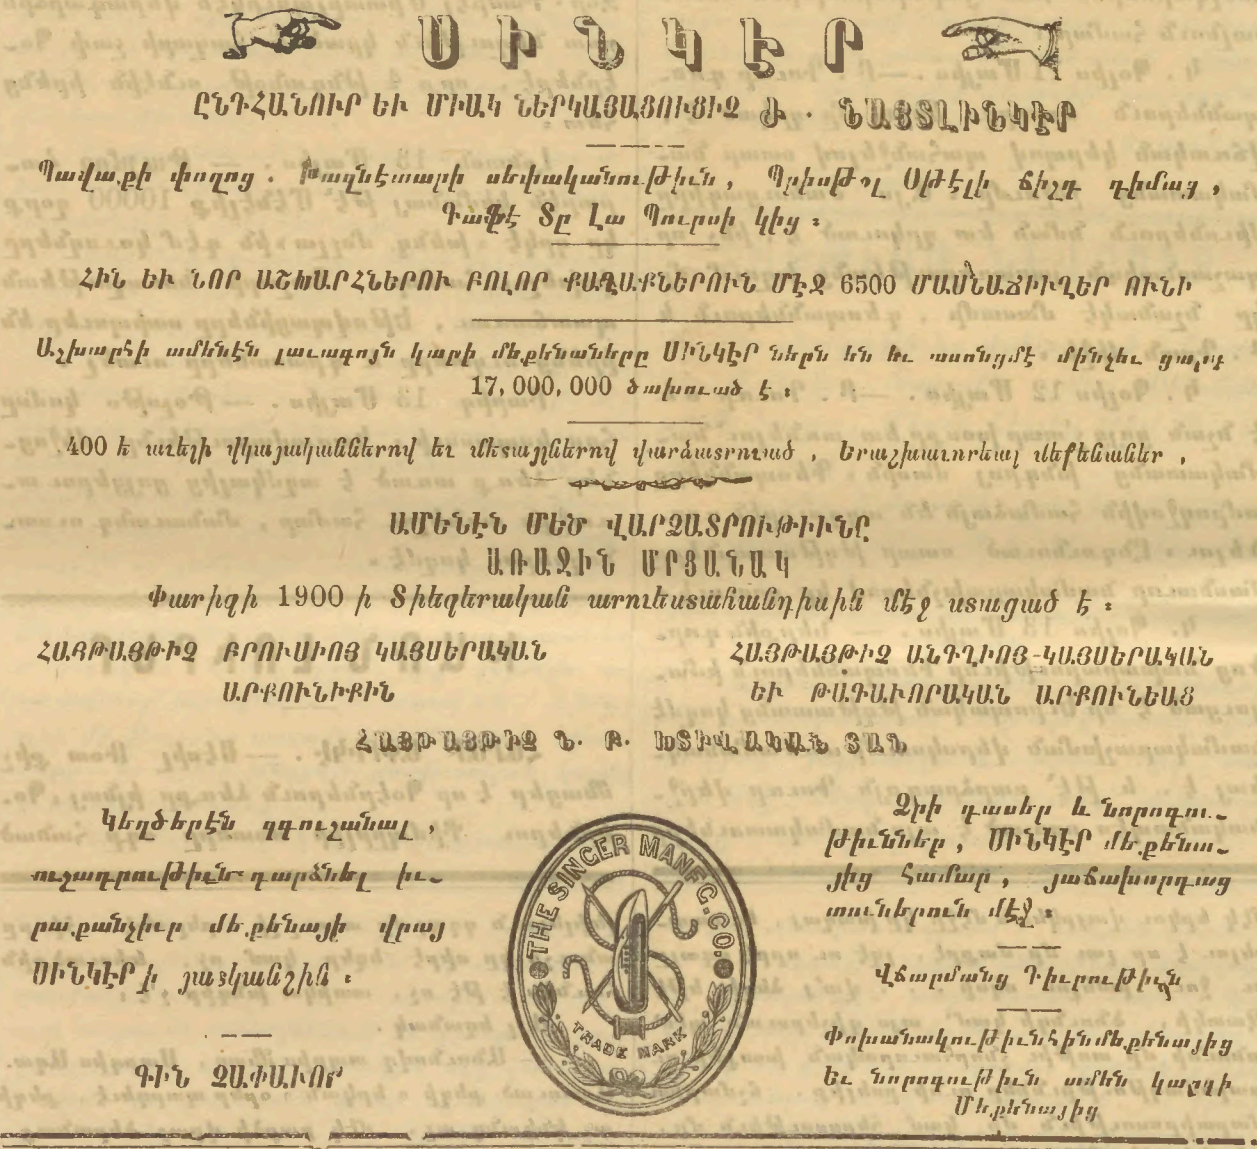 ՍԻՆԿԷՐ
ԸՆԴՀԱՆՈՒՐ ԵՒ ՄԻԱԿ ՆԵՐԿԱՅԱՑՈՒՑԻՉ Ժ. ՆԱՅՏԼԻՆԿԷՐ
Պավաքի փողոց. Խազնէտարի սեփականութիւն, Պրիսթօլ Օթէլի ճիշդ դիմաց,
Գաֆէ Տը Լա Պուրսի կից:
ՀԻՆ ԵՒ ՆՈՐ ԱՇԽԱՐՀՆԵՐՈՒ ԲՈԼՈՐ ՔԱՂԱՔՆԵՐՈՒՆ ՄԷՋ 6500 ՄԱՍՆԱՃԻՒՂԵՐ ՈՒՆԻ
Աշխարհի ամենէն լաւագոյն կարի մեքենաները ՍԻՆԿԷՐ ներն են եւ ասոնցմէ մինչեւ ցարդ
17,000,000 ծախուած է:
400 է աւելի վկայականներով եւ մետալներով վարձատրուած, Երաշխաւորեալ մեքենաներ,
ԱՄԵՆԷՆ ՄԵԾ ՎԱՐՁԱՏՐՈՒԹԻՒՆԸ
ԱՌԱՋԻՆ ՄՐՑԱՆԱԿ
Փարիզի 1900 ի Տիեզերական արուեստահանդիսին մէջ ստացած է:
ՀԱՅԹԱՅԹԻՉ ԲՐՈՒՍԻՈՅ ԿԱՅՍԵՐԱԿԱՆ
ԱՐՔՈՒՆԻՔԻՆ
ՀԱՅԹԱՅԹԻՉ ԱՆԳՂԻՈՅ-ԿԱՅՍԵՐԱԿԱՆ
ԵՒ ԹԱԳԱՒՈՐԱԿԱՆ ԱՐՔՈՒՆԵԱՑ
ՀԱՅԹԱՅԹԻՉ Ն. Բ. ԽՏԻՎԱԿԱՆ ՏԱՆ
Կեղծերէն զգուշանալ,
ուշադրութիւն դարձնել իւ-
րաքանչիւր մեքենայի վրայ
ՍԻՆԿԷՐ ի յատկանշին:
ԳԻՆ ՉԱՓԱՒՈՐ
THE SINGER MANFG. CO.
TRADE MARK
Ձրի դասեր և նորոգու-
թիւններ, ՍԻՆԿԷՐ մեքենա-
յից համար, յաճախորդաց
տուներուն մէջ:
Վճարմանց Դիւրութիւն
Փոխանակութիւն հին մեքենայից
Եւ նորոգութիւն ամեն կարգի
Մեքենայից